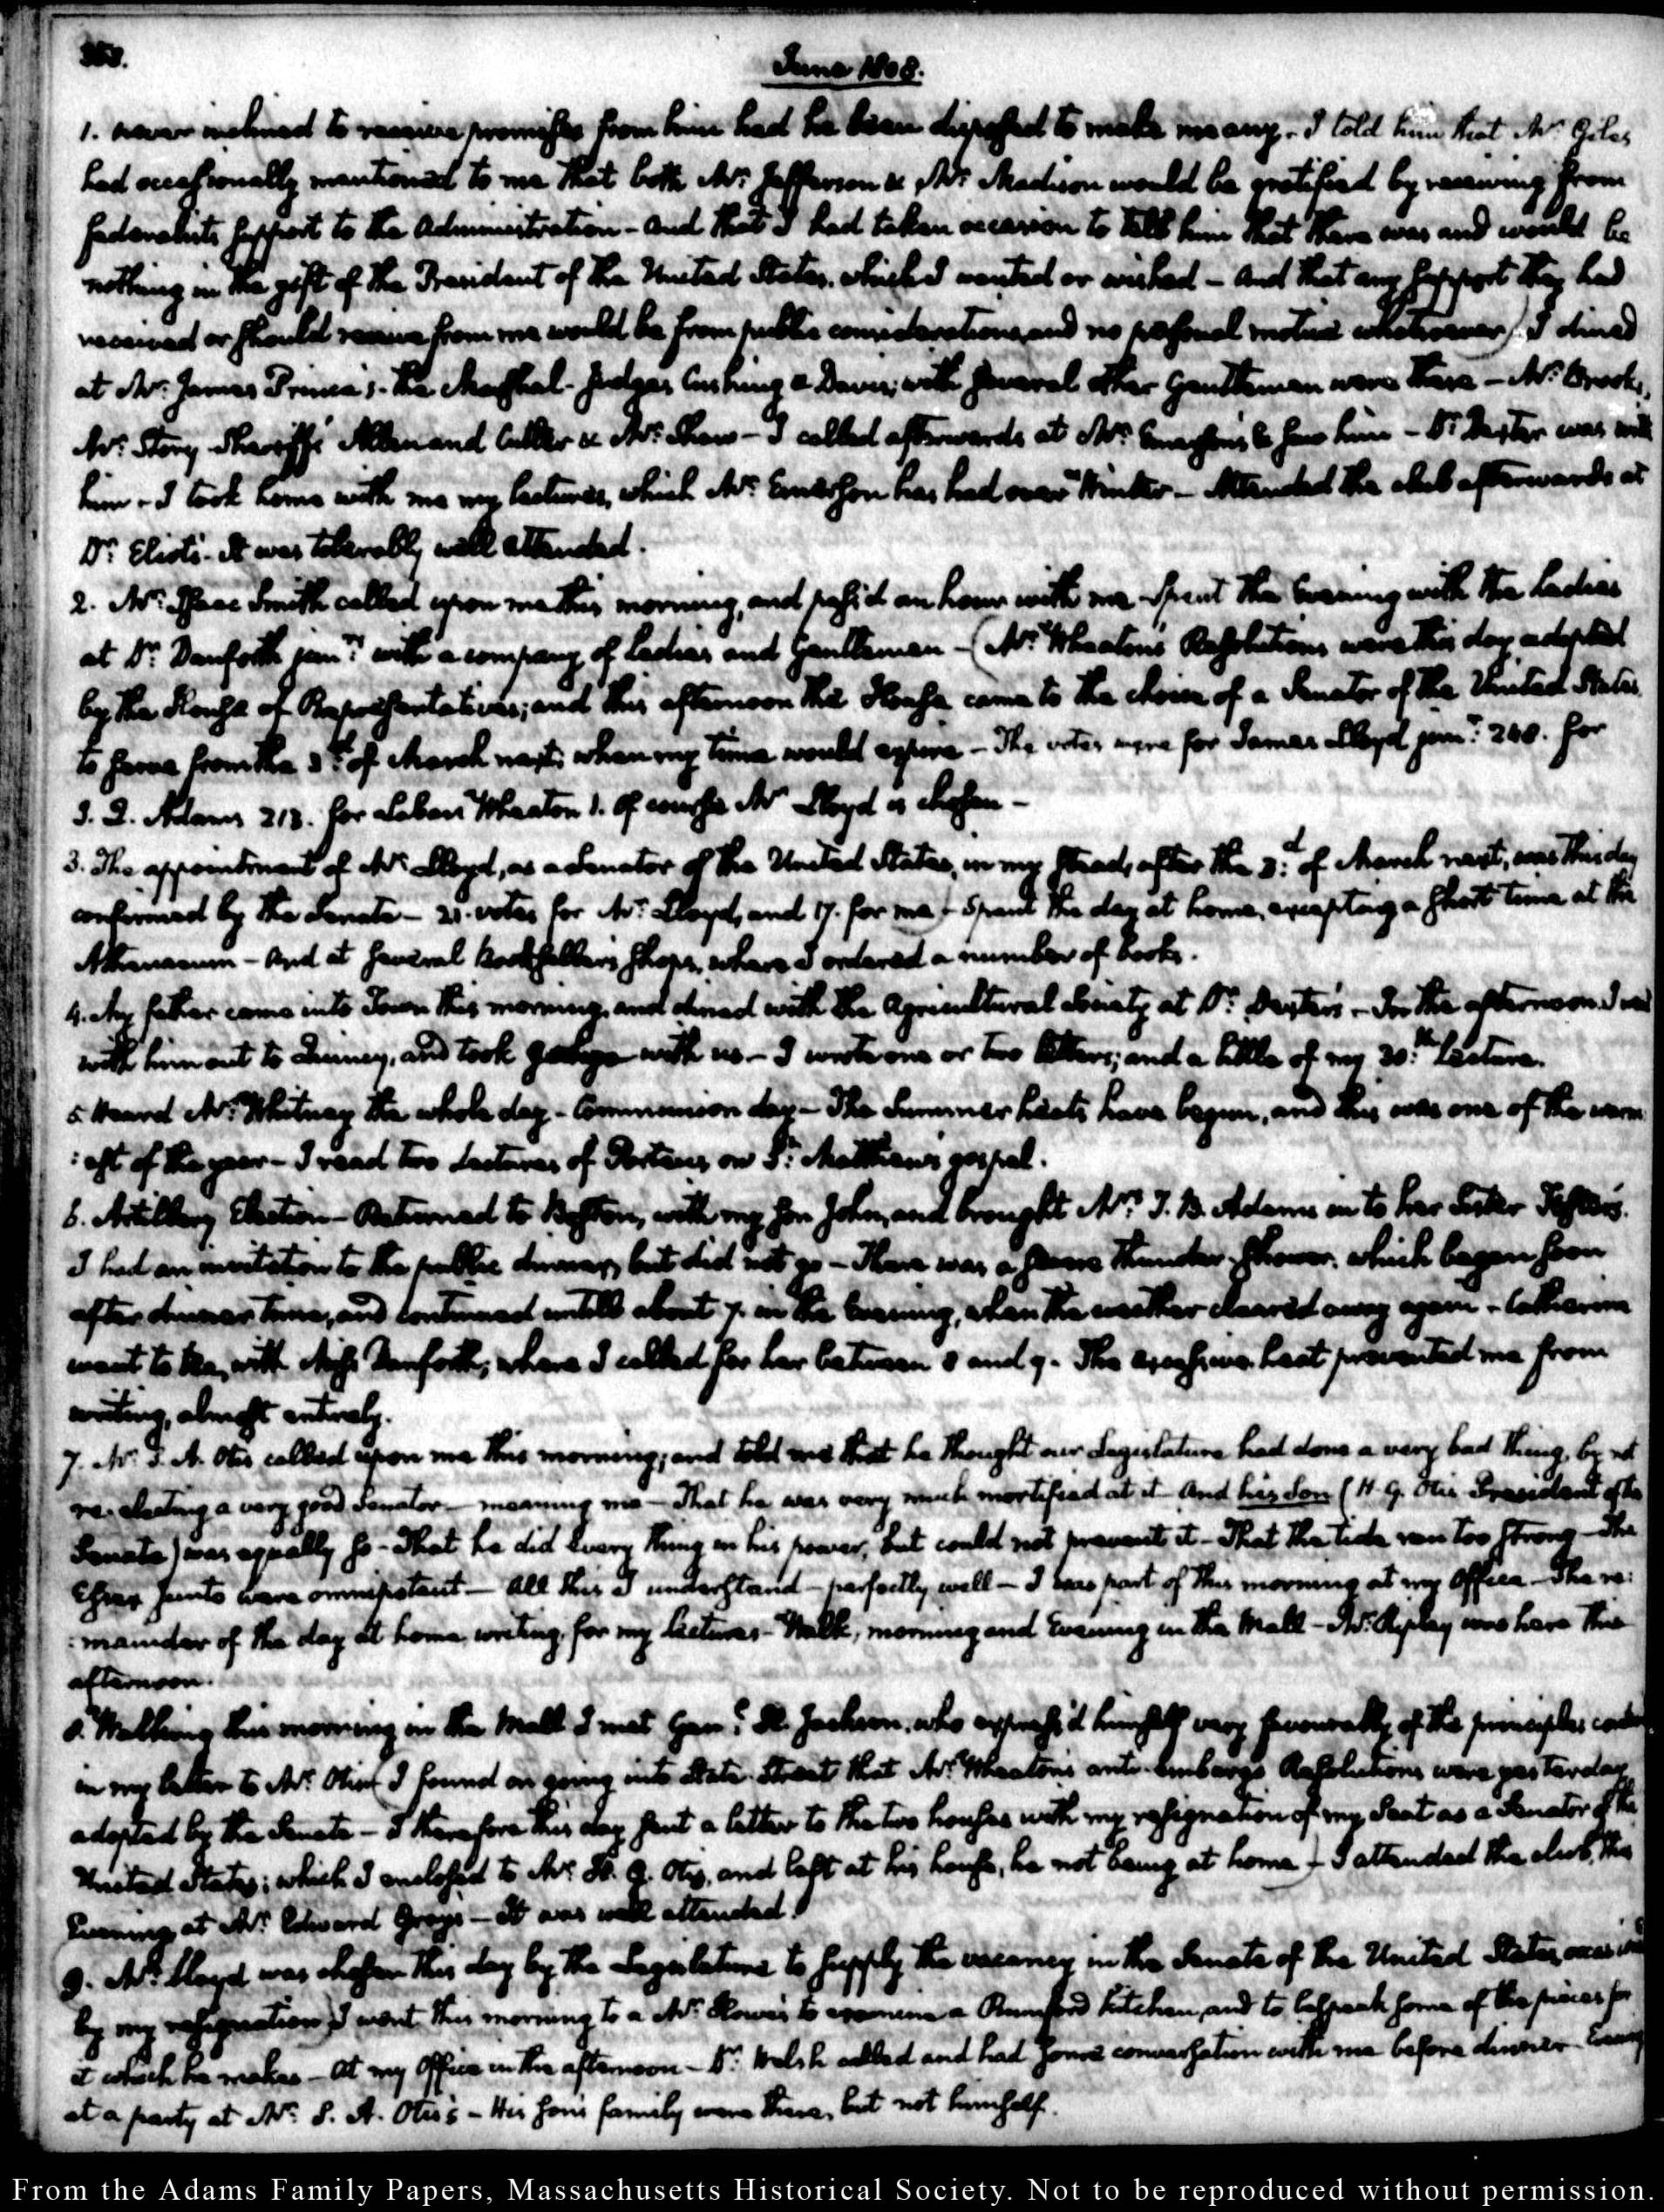 358.
June 1808.
1. never inclined to receive promises from him had he been disposed to make me any. I told him that Mr. Giles
had occasionally mentioned to me that both Mr. Jefferson & Mr. Madison would be gratified by receiving from
federalists support to the Administration - and that I had taken occasion to tell him that there was and would be
nothing in the gift of the President of the United States, which I wanted or wished - And that any support they had
received or should receive from me would be from public considerations, and no personal motive whatsoever) I dined
at Mr. James Prince's. the Marshal - Judges Cushing & Davis, with several other Gentlemen were there - Mr. Brooks,
Mr. Story Sheriffs Allen and Cutler & Mr. Shaw - I called afterwards at Mr. Emerson's & saw him - Dr. Dexter was with
him - I took home with me my lectures, which Mr. Emerson has had over Winter - Attended the club afterwards at
Dr. Eliot's. It was tolerably well attended.
2. Mr. Isaac Smith called upon me this morning, and pass'd an hour with me - Spent the Evening with the Ladies
at Dr. Danforth junr. with a company of Ladies and Gentlemen - (Mr. Wheaton's Resolutions were this day adopted
by the House of Representatives; and this afternoon the House came to the choice of a Senator of the United States
to serve from the 3d. of March next; when my time would expire - The votes were for James Lloyd junr. 248. for
J. Q. Adams 213. for Laban Wheaton 1. Of course Mr. Lloyd is chosen -
3. The appointment of Mr. Lloyd, as a Senator of the United States, in my stead, after the 3d. of March next, was this day
confirmed by the Senate - 21. votes for Mr. Lloyd, and 17. for me) - Spent the day at home, excepting a short time at the
Athenaeum - And at several Bookseller's shops, where I ordered a number of books.
4. My father came into Town this morning, and dined with the Agricultural Society at Dr. Dexter's. - In the afternoon I went
with him out to Quincy, and took George with us - I wrote one or two letters; and a little of my 30th. Lecture.
5. Heard Mr. Whitney the whole day - Communion day - The Summer heats have begun, and this was one of the warm
:est of the year - I read two Lectures of Porteus on St. Matthew's gospel.
6. Artillery Election - Returned to Boston, with my son John, and brought Mrs. T. B. Adams in to her Sister Foster's.
I had an invitation to the public dinner, but did not go - There was a severe thunder-shower, which began soon
after dinner time, and continued untill about 7. in the Evening, when the weather cleared away again - Catherine
went to tea, with Miss Danforth; where I called for her between 8 and 9. The excessive heat prevented me from
writing, almost entirely.
7. Mr. S. A. Otis called upon me this morning; and told me that he thought our Legislature had done a very bad thing, by not
re-electing a very good Senator - meaning me - That he was very much mortified at it - And his Son (H. G. Otis President of the
Senate) was equally so - That he did every thing in his power, but could not prevent it - That the tide ran too strong - The
Essex Junto were omnipotent - All this I understand - perfectly well - I was part of this morning at my Office - The re:
:mainder of the day at home writing for my lectures - Walk, morning and Evening in the Mall - Mr. Ripley was here this
afternoon.
8. Walking this morning in the Mall I met Genl. H. Jackson, who express'd himself very favourably of the principles
in my letter to Mr. Otis (I found on going into State-Street that Mr. Wheaton's anti-embargo Resolutions were yesterday
adopted by the Senate - I therefore this day sent a letter to the two houses with my resignation of my Seat as a Senator of the
United States; which I enclosed to Mr. H. G. Otis, and left at his house, he not being at home) - I attended the club, this
Evening, at Mr. Edward Gray's - It was well attended.
9. Mr. Lloyd was chosen this day by the Legislature to supply the vacancy in the Senate of the United States,
by my resignation) I went this morning to a Mr. Howe's to examine a Rumford kitchen, and to bespeak some of the pieces for
it which he makes - At my Office in the afternoon - Dr. Welsh called and had some conversation with me before dinner - Evening
at a party at Mr. S. A. Otis's - His son's family were there, but not himself.
From the Adams Family Papers, Massachusetts Historical Society. Not to be reproduced without permission.